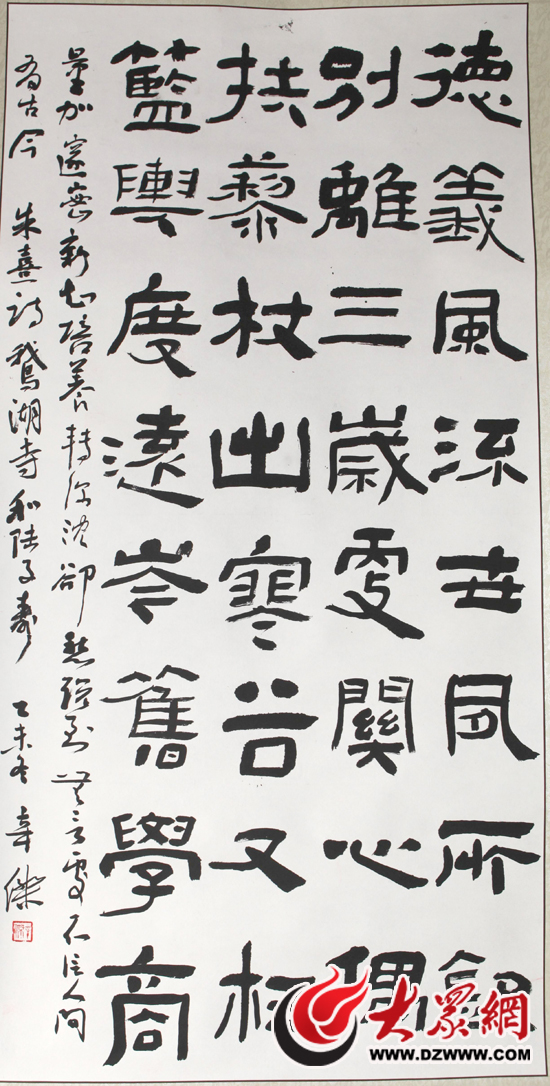 徳義風流世夙所欽
别離三歲更關心偶
扶藜杖出寒谷又枉
籃輿度遠岑舊學商
量加邃密新知培養轉深沈卻愁說到無言處不信人間
有古今 朱熹詩鵝湖寺和陸子壽 乙未冬 傑
大眾網
WWW.DZWWW.COM